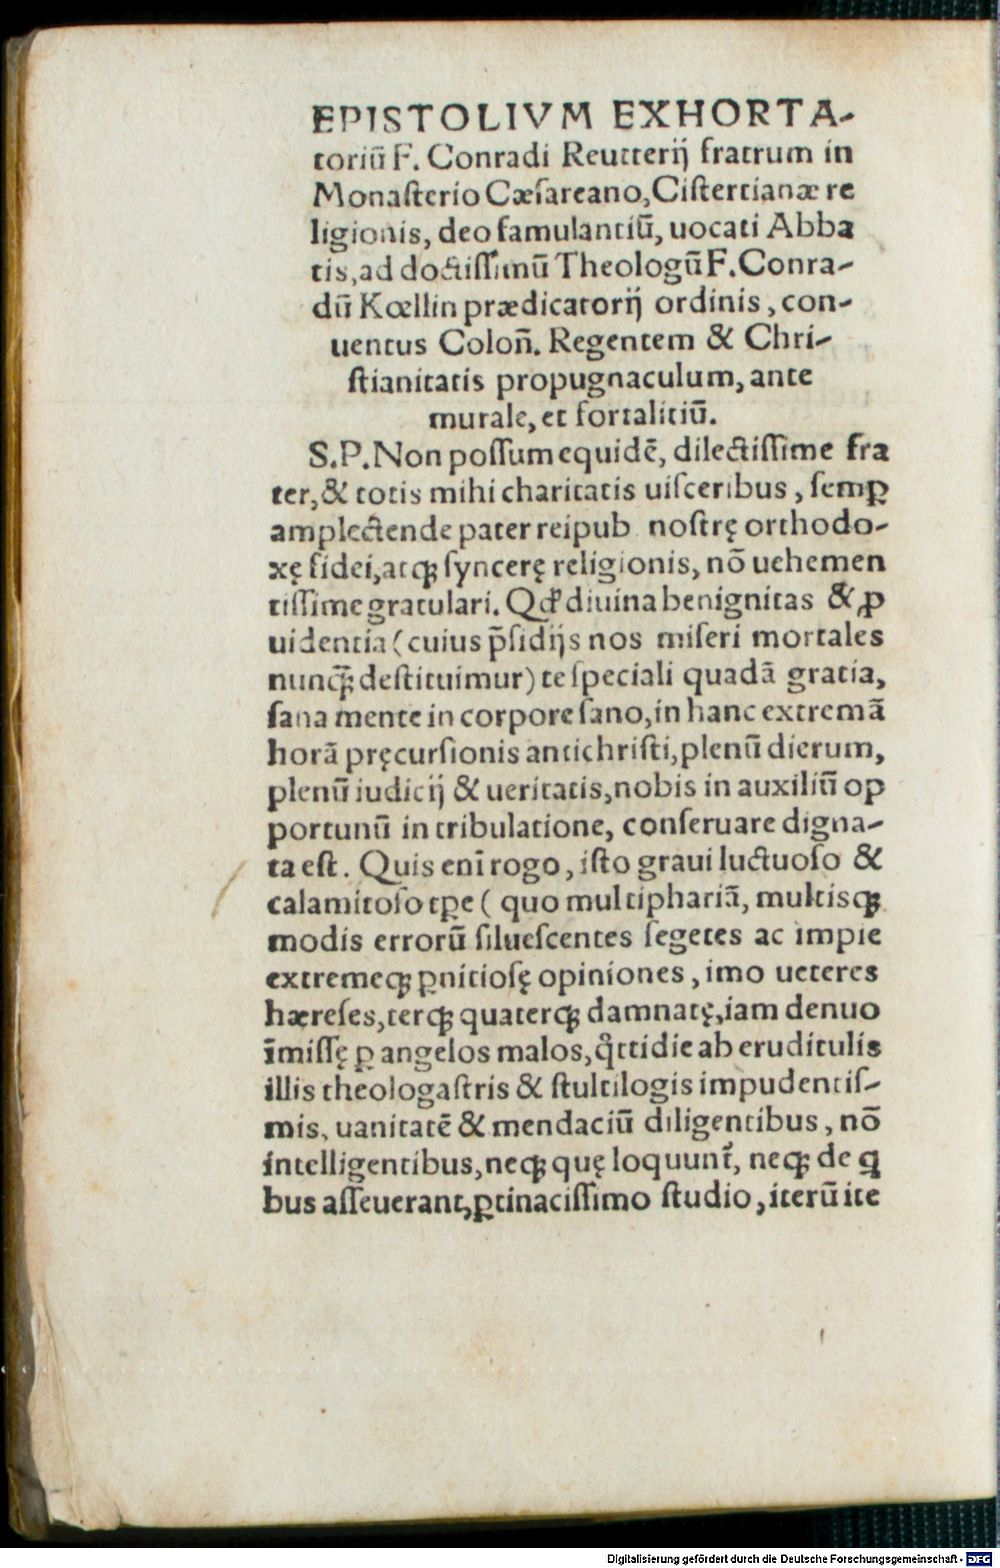 EPISTOLIVM EXHORTA-
toriū F. Conradi Reutterij fratrum in
Monaſterio Cæſareano, Ciſtertianæ re
ligionis, deo famulantiū, uocati Abba
tis, ad doctiſſimū Theologū F. Conra-
dū Kœllin prædicatorij ordinis, con-
uentus Coloñ. Regentem & Chri-
ſtianitatis propugnaculum, ante
murale, et fortalitiū.
S.P. Non poſſum equidē, dilectiſſime fra
ter, & totis mihi charitatis uiſceribus, ſemꝑ
amplectende pater reipub noſtrę orthodo-
xę fidei, atqꝫ ſyncerę religionis, nō uehemen
tiſſime gratulari. Qđ diuina benignitas & ꝓ
uidentia (cuius p̄ſidijs nos miſeri mortales
nunq̄ꝫ deſtituimur) te ſpeciali quadā gratia,
ſana mente in corpore ſano, in hanc extremā
horā pręcurſionis antichriſti, plenū dierum,
plenū iudicij & ueritatis, nobis in auxiliū op
portunū in tribulatione, conſeruare digna-
ta eſt. Quis enī rogo, iſto graui luctuoſo &
calamitoſo tꝑe ( quo multiphariā, multisqꝫ
modis errorū ſilueſcentes ſegetes ac impie
extremeqꝫ ꝑnitioſę opiniones, imo ueteres
hæreſes, terqꝫ quaterqꝫ damnatę, iam denuo
īmiſſę ꝑ angelos malos, qͦttidie ab eruditulis
illis theologaſtris & ſtultilogis impudentiſ-
mis, uanitatē & mendaciū diligentibus, nō
intelligentibus, neqꝫ quę loquunt᷑, neqꝫ de ꝗ
bus aſſeuerant, ꝑtinaciſſimo ſtudio, iterū ite
Digitalisierung gefördert durch die Deutsche Forschungsgemeinschaft - DFG